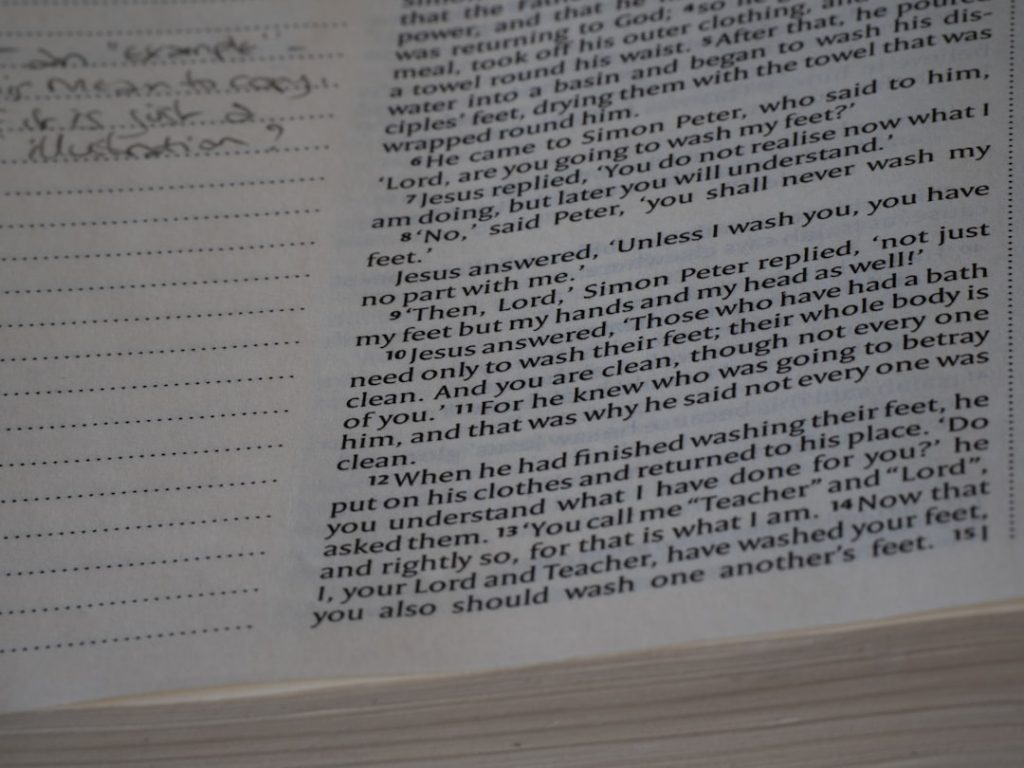 an "example" -
mean to copy
it is just a
illustration?
that the Fath
power, and that he h
was returning to God; 4so he g
meal, took off his outer clothing, an
a towel round his waist. 5After that, he poured
water into a basin and began to wash his dis-
ciples' feet, drying them with the towel that was
wrapped round him.
6He came to Simon Peter, who said to him,
'Lord, are you going to wash my feet?'
7Jesus replied, 'You do not realise now what I
am doing, but later you will understand.'
8'No,' said Peter, 'you shall never wash my
feet.'
Jesus answered, 'Unless I wash you, you have
no part with me.'
9'Then, Lord,' Simon Peter replied, 'not just
my feet but my hands and my head as well!'
10Jesus answered, 'Those who have had a bath
need only to wash their feet; their whole body is
clean. And you are clean, though not every one
of you.' 11For he knew who was going to betray
him, and that was why he said not every one was
clean.
12When he had finished washing their feet, he
put on his clothes and returned to his place. 'Do
you understand what I have done for you?' he
asked them. 13'You call me "Teacher" and "Lord",
and rightly so, for that is what I am. 14Now that
I, your Lord and Teacher, have washed your feet,
you also should wash one another's feet. 15I